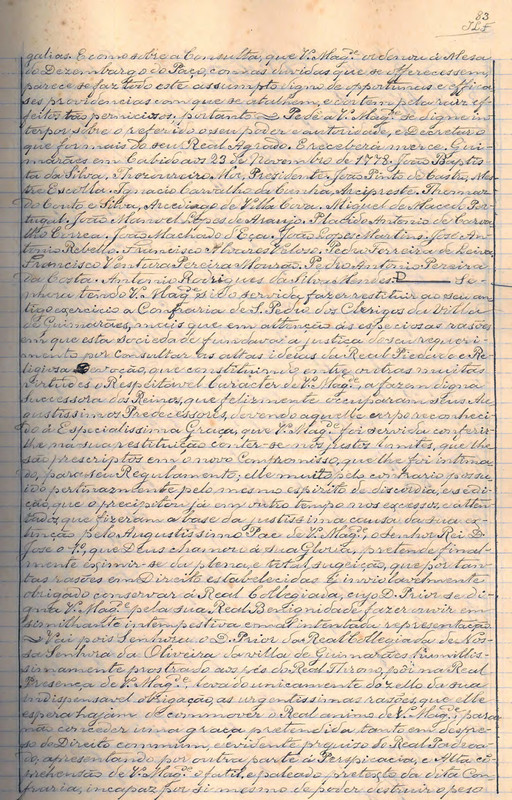 83
galias. E como sobre a Consulta, que V. Magᵉ ordenou á Mesa
do Dezembargo do Paço, com as duvidas que se offerecessem,
parece se faz todo este assumpto digno de opportunas e effica-
ses providencias com que se atalhem, e cortem pela raiz ef-
feitos tão perniciosos; portanto — Pede a V. Magᵉ se digne in-
terpor sobre o referido o seu poder e autoridade, e Decretar o
que for mais do seu Real Agrado. E receberá merce. Gui-
marães em Cabido aos 23 de Novembro de 1778. João Baptis-
ta da Silva, Thezoureiro Mór, Presidente. João Pinto de Castro, Mes-
tre Escolla. Ignacio Carvalho da Cunha, Arcipreste. Thomaz
do Couto e Silva, Arcediago de Villa Cova. Miguel de Macedo Por-
tugal. João Manoel Lopes de Araujo. Placido Antonio de Carva-
lho Correa. João Machado d'Eça. João Lopes Martins. José An-
tonio Rebello. Francisco Alvares Veloso. Pedro Ferreira de
Francisco Ventura Pereira Mourão. Pedro Antonio Pereira
da Costa. Antonio Rodrigues da Silva Mendes. D — Se-
nhora tendo V. Magᵉ sido servida, fazer restituir ao seu an-
tigo exercicio a Confraria de S. Pedro dos Clerigos da Villa
de Guimarães, mais que em attenção ás especiosas rasões
em que esta Sociedade fundava a justiça do seu requeri-
mento por consultar as altas ideias da Real Piedade e Re-
ligiosa Devoção, que constituindo entre outras muitas
Virtudes o Respeitavel Caracter de V. Magᵉ, a fazem digna
Successora dos Reinos, que felizmente occuparam seus Au-
gustissimos Predecessores, devendo aquelle corpo reconheci-
do á Especialissima Graça, que V. Magᵉ foi servida conferir-
lhe na sua restituição conter-se nos justos limites, que lhe
são prescriptos em o novo Compromisso, que lhe foi intima-
do, para seu Regulamento; elle muito pelo contrario possu-
ido pertinazmente pelo mesmo espirito de discordia, e sedi-
ção, que o precipitou já em outro tempo nos excessos, e atten-
tados que fizeram a base da justissima causa da sua ex-
tinção pelo Augustissimo Pae de V. Magᵉ, o Senhor Rei D.
José o 1º, que Deus chamou á sua Gloria, pretende final-
mente eximir-se da plena, e total sugeição, que por tan-
tas rasões em Direito estabelecidas é inviolavelmente
obrigado conservar á Real Collegiada, cujo D. Prior se di-
gna V. Magᵉ pela sua Real Benignidade fazer ouvir em
similhante intempestiva e mal intentada representação
— Vai pois Senhora o D. Prior da Real Collegiada de Nos-
sa Senhora da Oliveira da villa de Guimarães humillis-
simamente prostrado aos pés do Real Throno, pôr na Real
Presença de V. Magᵉ, levado unicamente do zello da sua
indispensavel obrigação, as urgentissimas rasões, que elle
espera hajam de commover o Real animo de V. Magᵉ, para
não conceder uma graça pretendida tanto em despre-
so do Direito commum, e evidente prejuizo do Real Padroa-
do, apresentando por outra parte á Perspicacia, e Alta com-
prehensão de V. Magᵉ o futil, e paleado pretexto da dita Con-
fraria, incapaz por si mesmo de poder destruir o peso